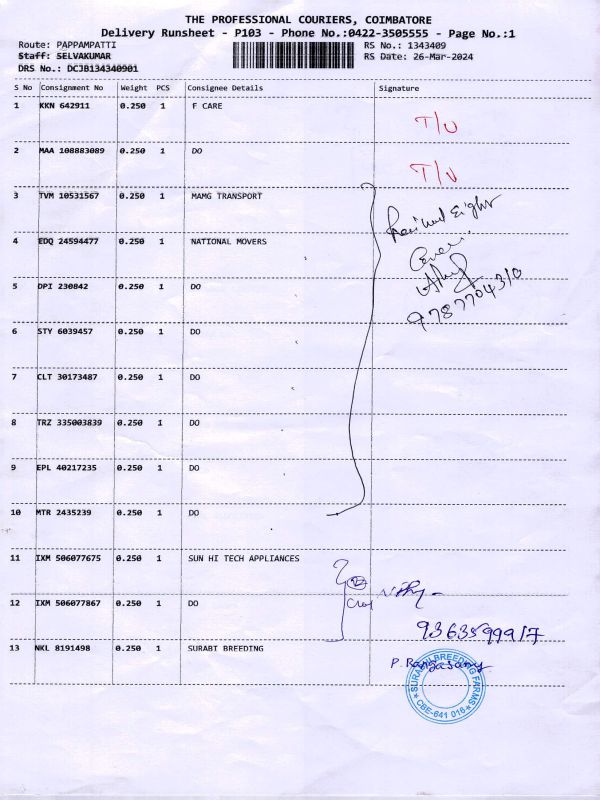 THE PROFESSIONAL COURIERS, COIMBATORE
Delivery Runsheet - P103 - Phone No.:0422-3505555 - Page No.:1
Route: PAPPAMPATTI RS No.: 1343409
Staff: SELVAKUMAR RS Date: 26-Mar-2024
DRS No.: DCJB134340901
S No Consignment No Weight PCS Consignee Details Signature
1 KKN 642911 0.250 1 F CARE
T/U
2 MAA 108883089 0.250 1 DO
T/U
3 TVM 10531567 0.250 1 MAMG TRANSPORT
Received Eight
4 EDQ 24594477 0.250 1 NATIONAL MOVERS
Covers.
5 DPI 230842 0.250 1 DO
9787704310
6 STY 6039457 0.250 1 DO
7 CLT 30173487 0.250 1 DO
8 TRZ 335003839 0.250 1 DO
9 EPL 40217235 0.250 1 DO
10 MTR 2435239 0.250 1 DO
11 IXM 506077675 0.250 1 SUN HI TECH APPLIANCES
2
12 IXM 506077867 0.250 1 DO
9363599917
13 NKL 8191498 0.250 1 SURABT BREEDING
P. Rangasamy
SURABHI BREEDING FARMS
CBE-641 016